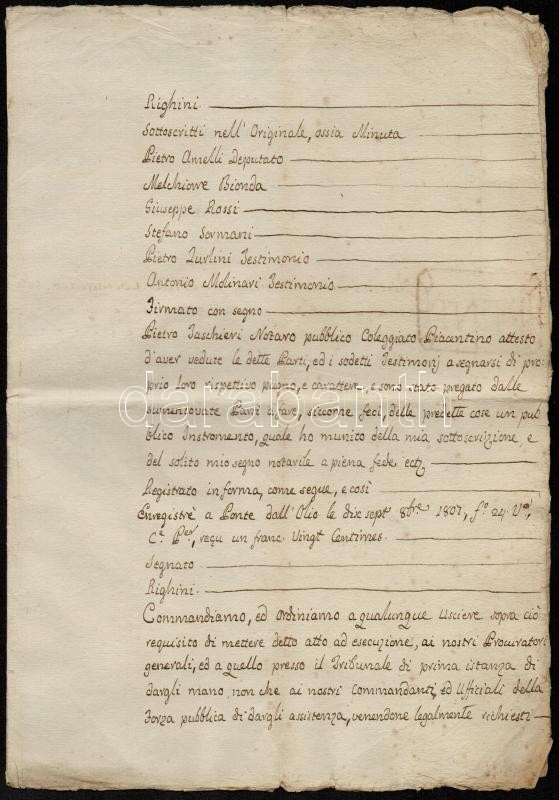 Righini
Sottoscritti nell'Originale, ossia Minuta
Pietro Amelli Deputato
Melchiorre Bionda
Giuseppe Rossi
Stefano Sormani
Pietro Zurlini Testimonio
Antonio Molinari Testimonio
Firmato con segno
Pietro Taschieri Notaro pubblico Coleggiato Piacentino attesto
d'aver vedute le dette Parti, ed i sodetti Testimonj a segnarsi di pro-
prio loro rispettivo pugno, e carattere, e sono stato pregato dalle
sumensovate Parti a fare, siccome feci, delle predette cose un pub
blico Instromento, quale ho munito della mia sottoscrizione, e
del solito mio segno notarile a piena fede
Registrato in forma, come segue, e così
Enregistrè a Ponte dall'Olio le dix sept 8bre 1807, f.o 24 V.o,
C.e Per, reçu un franc Vingt Centimes
Segnato
Righini
Commandiamo, ed ordiniamo a qualunque Usciere sopra ciò
requisito di mettere detto atto ad esecuzione, ai nostri Procuratori
generali, ed a quello presso il Tribunale di prima istanza di
dargli mano, non che ai nostri Commandanti, ed Ufficiali della
Forza pubblica di dargli assistenza, venendone legalmente richiesti
darabanth